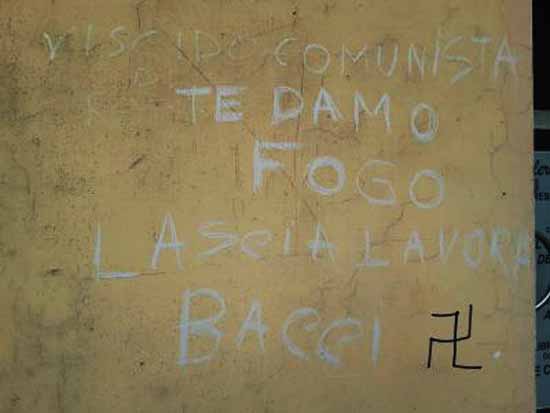 VISCIDO COMUNISTA
TE DAMO
FOGO
LASCIA LAVORA
BACCI